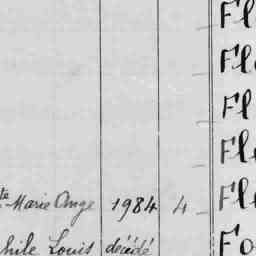 Fl
Fl
Fl
Fl
te Marie Ange 1984 4 Fl
hile Louis décédé Fo